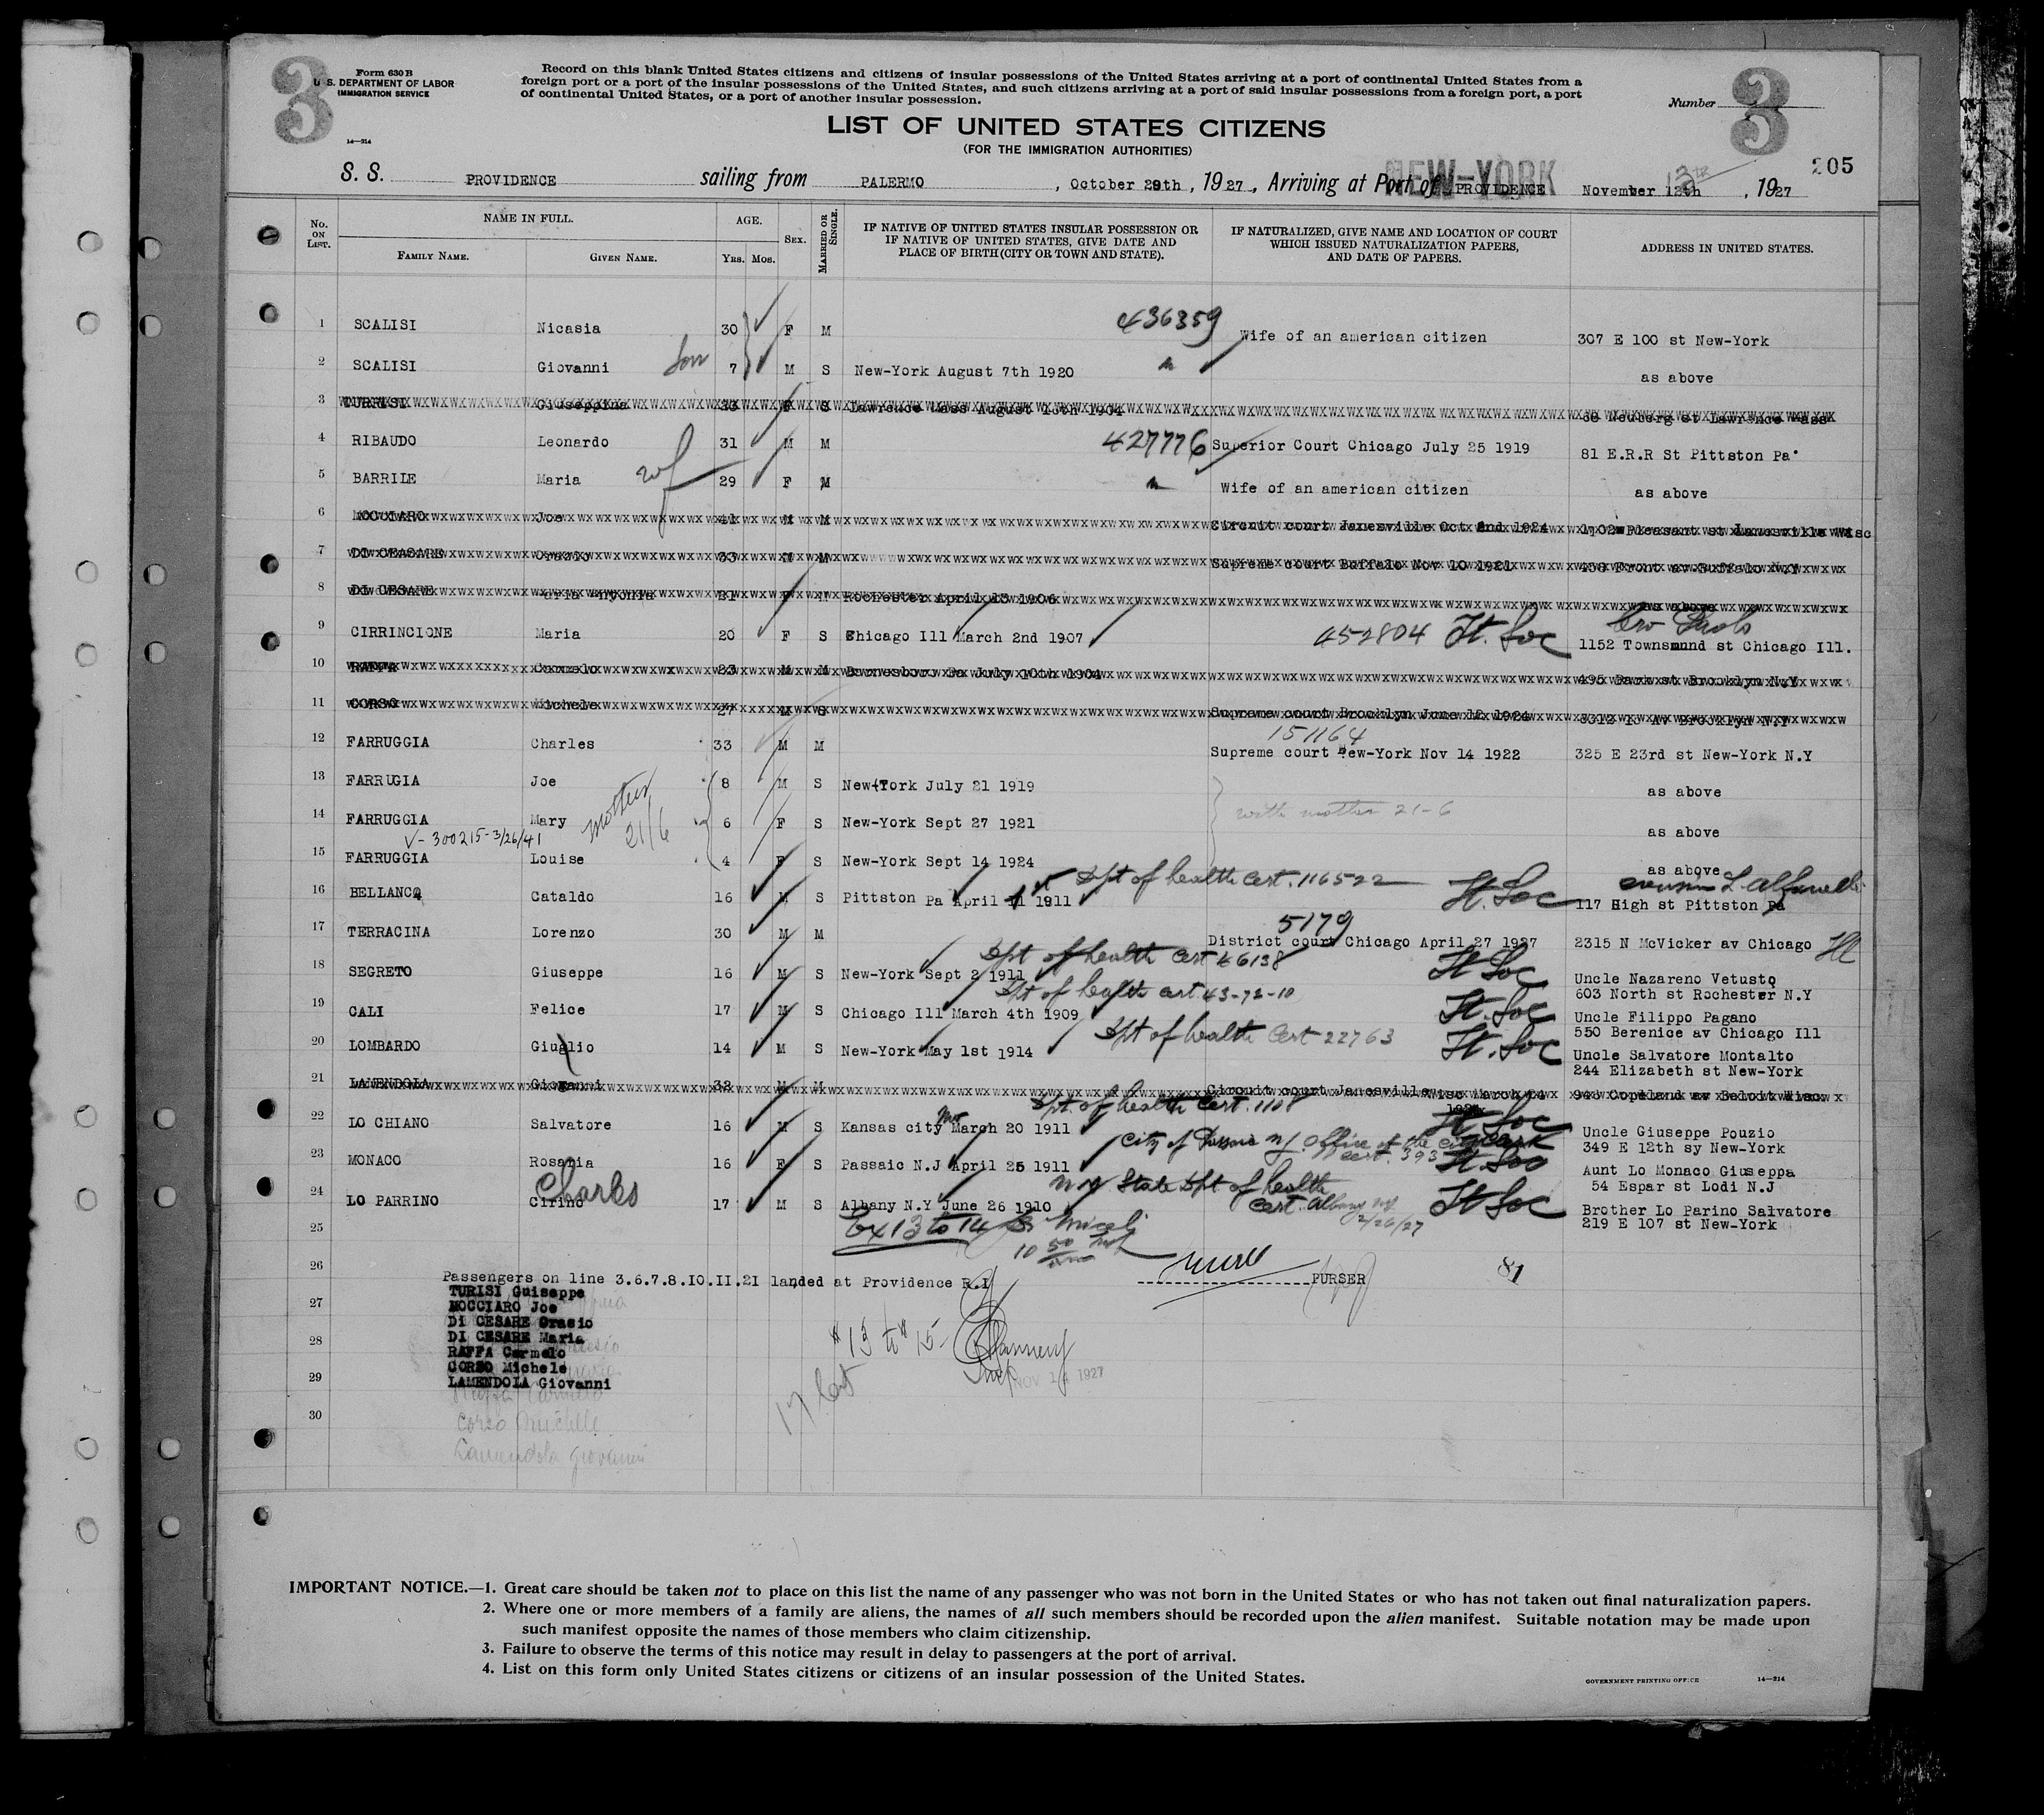 3
Form 630 B
U. S. DEPARTMENT OF LABOR
IMMIGRATION SERVICE
14—214
Record on this blank United States citizens and citizens of insular possessions of the United States arriving at a port of continental United States from a
foreign port or a port of the insular possessions of the United States, and such citizens arriving at a port of said insular possessions from a foreign port, a port
of continental United States, or a port of another insular possession.
Number
3
LIST OF UNITED STATES CITIZENS
(FOR THE IMMIGRATION AUTHORITIES)
205
S. S. PROVIDENCE sailing from PALERMO , October 29th , 1927 , Arriving at Port of PROVIDENCE NEW-YORK November 12th 13th , 1927
No. ON LIST. NAME IN FULL. AGE. SEX. MARRIED OR SINGLE. IF NATIVE OF UNITED STATES INSULAR POSSESSION OR IF NATIVE OF UNITED STATES, GIVE DATE AND PLACE OF BIRTH (CITY OR TOWN AND STATE). IF NATURALIZED, GIVE NAME AND LOCATION OF COURT WHICH ISSUED NATURALIZATION PAPERS, AND DATE OF PAPERS. ADDRESS IN UNITED STATES.
FAMILY NAME. GIVEN NAME. YRS. MOS.
1 SCALISI Nicasia 30 F M 436359 Wife of an american citizen 307 E 100 st New-York
2 SCALISI Giovanni son 7 M S New-York August 7th 1920 as above
3 TURISI Giuseppina 23 F S Lawrence Mass August 1904 Neuberg st Lawrence Mass
4 RIBAUDO Leonardo 31 M M 427776 Superior Court Chicago July 25 1919 81 E.R.R St Pittston Pa
5 BARRILE Maria wf 29 F M Wife of an american citizen as above
6 MOCCIARO Joe 41 M M Circuit court Janesville Oct 2nd 1924 Pleasant st Janesville Wisc
7 DI CEASARE Orazio 33 M M Supreme court Buffalo Nov 10 1921 458 Front av Buffalo N.Y
8 DI CESARE Maria Antonia 21 F M Rochester April 13 1906 as above
9 CIRRINCIONE Maria 20 F S Chicago Ill March 2nd 1907 452804 St. Soc 1152 Townsmund st Chicago Ill.
10 RAFFA Carmelo 23 M M Barnesboro Pa July 10th 1904 495 Park st Brooklyn N.Y
11 CORSO Michele 27 M S Supreme court Brooklyn June 12 1924 Av Brooklyn N.Y
12 FARRUGGIA Charles 33 M M 151164 Supreme court New-York Nov 14 1922 325 E 23rd st New-York N.Y
13 FARRUGIA Joe 8 M S New-York July 21 1919 as above
14 FARRUGGIA Mary mother 21/6 6 F S New-York Sept 27 1921 with mother 21-6 as above
V- 300215-3/26/41
15 FARRUGGIA Louise 4 F S New-York Sept 14 1924 as above
16 BELLANCA Cataldo 16 M S Pittston Pa April 1st 1911 Dpt of health Cert. 116522 St. Soc 117 High st Pittston Pa
17 TERRACINA Lorenzo 30 M M 5179 District court Chicago April 27 1927 2315 N McVicker av Chicago Ill
18 SEGRETO Giuseppe 16 M S New-York Sept 2 1911 Dpt of health Cert 46138 St Soc Uncle Nazareno Vetusto
603 North st Rochester N.Y
19 CALI Felice 17 M S Chicago Ill March 4th 1909 Dpt of health cert 43-72-10 St. Soc Uncle Filippo Pagano
550 Berenice av Chicago Ill
20 LOMBARDO Giuglio 14 M S New-York May 1st 1914 Dpt of health Cert 22763 St. Soc Uncle Salvatore Montalto
244 Elizabeth st New-York
21 LAMENDOLA Giovanni 32 M M Circuit court Janesville Wisc March 24 948 Copeland av Beloit Wisc
22 LO CHIANO Salvatore 16 M S Kansas city Mo March 20 1911 Dpt. of health Cert. 1108 St Soc Uncle Giuseppe Pouzio
349 E 12th sy New-York
23 MONACO Rosaria 16 F S Passaic N.J April 25 1911 City of Passaic NJ office of the city clerk cert. 393 St. Soc Aunt Lo Monaco Giuseppa
54 Espar st Lodi N.J
24 LO PARRINO Cirino Charles 17 M S Albany N.Y June 26 1910 N.Y State Dpt. of health Cert. Albany NY 2/26/27 St Soc Brother Lo Parino Salvatore
219 E 107 st New-York
25 Ex 13 to 14
26
Passengers on line 3.6.7.8.IO.II.2I landed at Providence R.I PURSER 81
TURISI Guiseppe
27 MOCCIARO Joe
Di CESARE Orasio
28 DI CESARE Maria
RAFFA Carmelo
CORSO Michele
29 LAMENDOLA Giovanni
# 13 to # 15
NOV 14 1927
30 Corso Michele
Lamendola Giovanni
IMPORTANT NOTICE.—1. Great care should be taken not to place on this list the name of any passenger who was not born in the United States or who has not taken out final naturalization papers.
2. Where one or more members of a family are aliens, the names of all such members should be recorded upon the alien manifest. Suitable notation may be made upon
such manifest opposite the names of those members who claim citizenship.
3. Failure to observe the terms of this notice may result in delay to passengers at the port of arrival.
4. List on this form only United States citizens or citizens of an insular possession of the United States.
GOVERNMENT PRINTING OFFICE 14—214